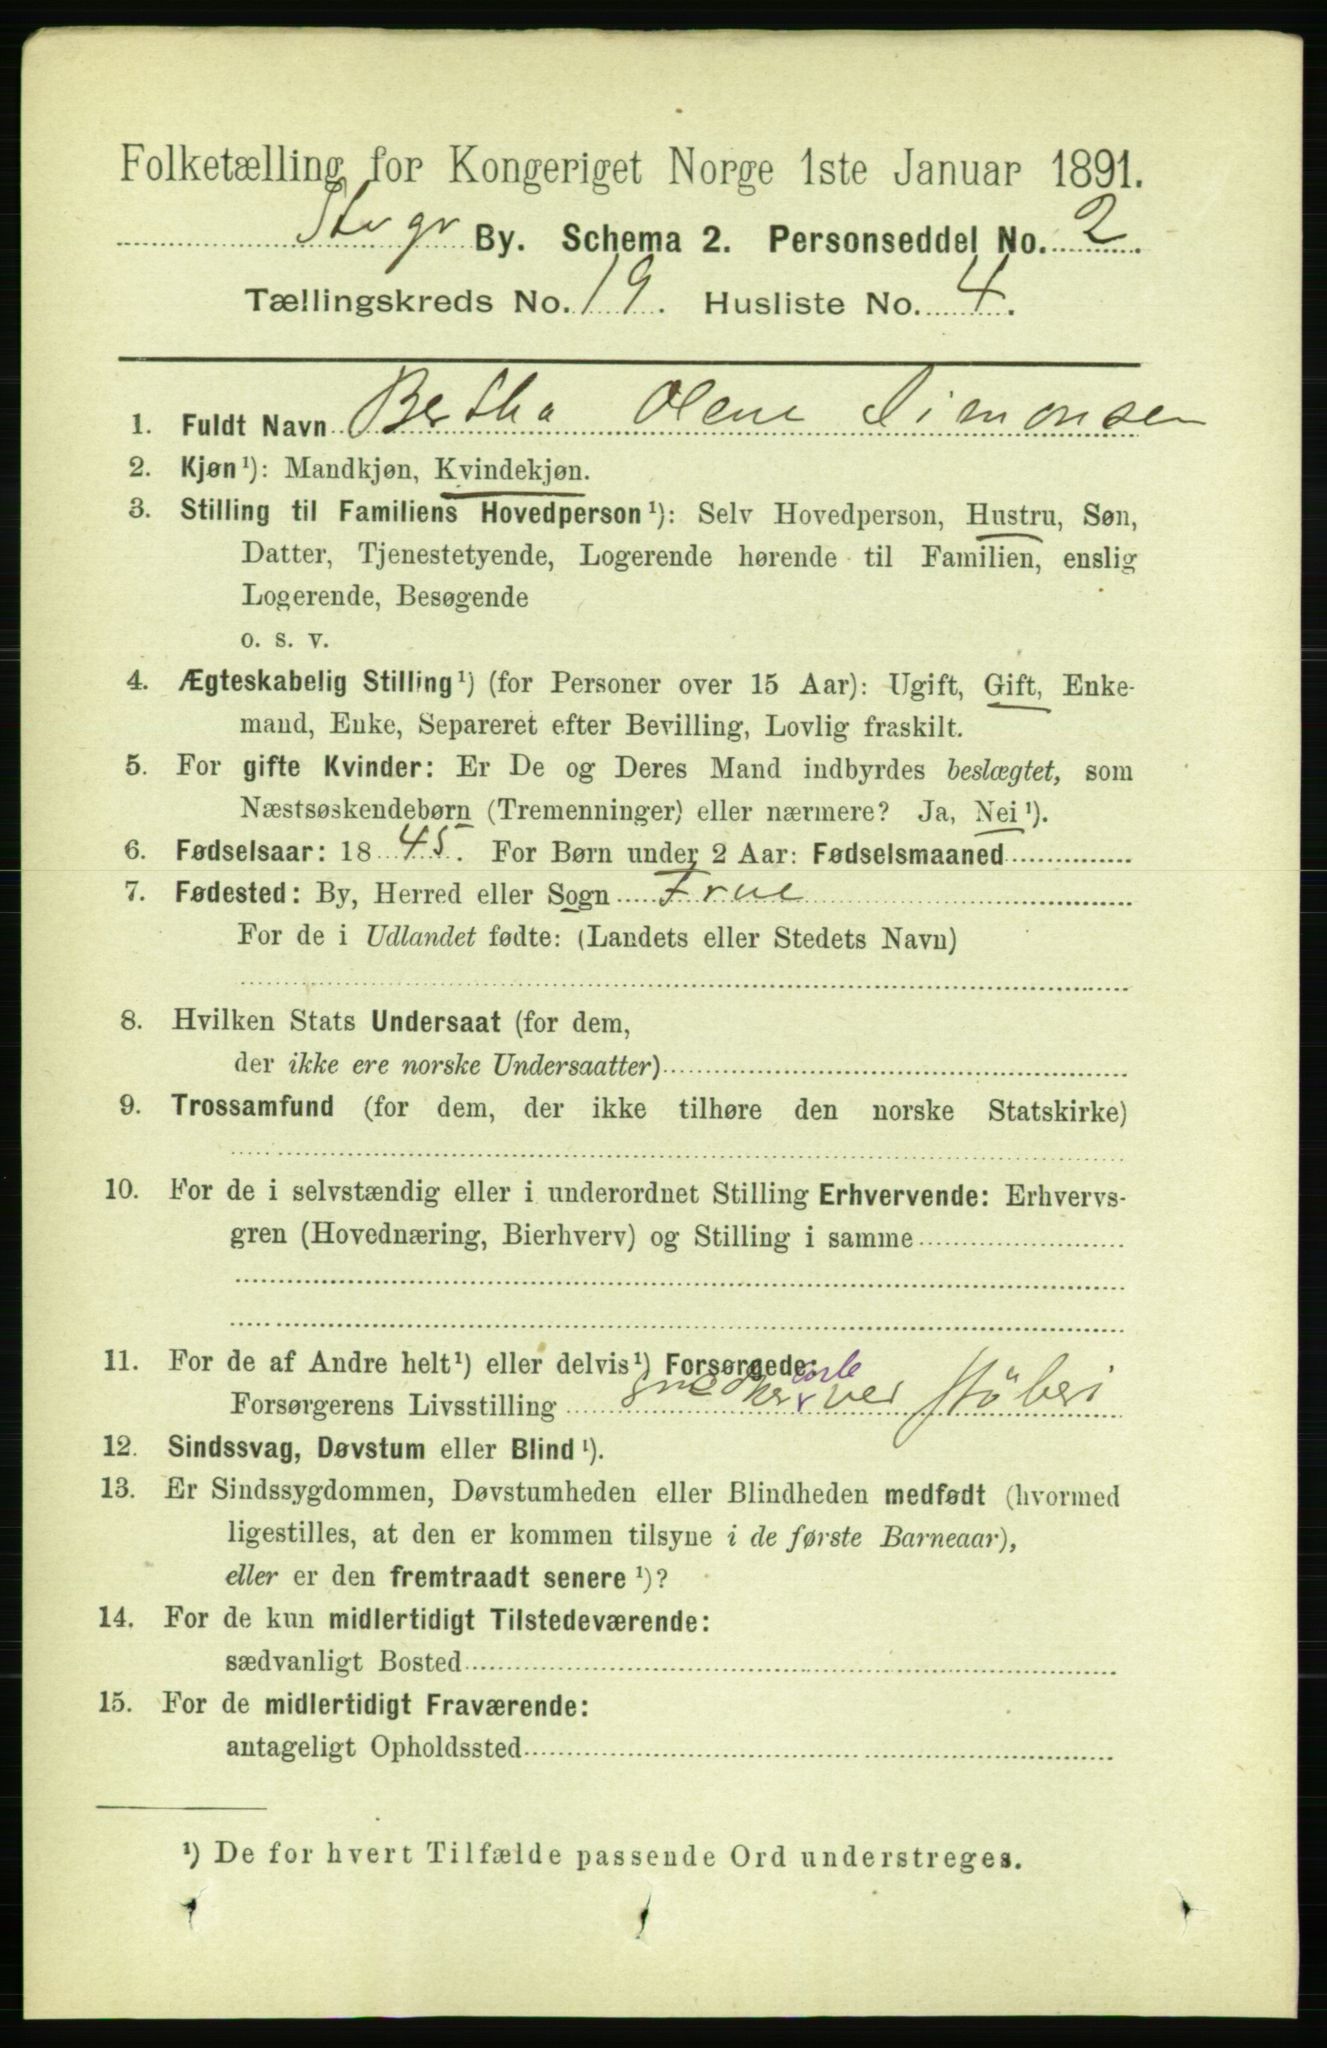 Folketælling for Kongeriget Norge 1ste Januar 1891.
By. Schema 2. Personseddel No. 2.
Tællingskreds No. 19. Husliste No. 4.
1. Fuldt Navn Bertha Olene Simonsen
2. Kjøn¹): Mandkjøn, Kvindekjøn.
3. Stilling til Familiens Hovedperson¹): Selv Hovedperson, Hustru, Søn,
Datter, Tjenestetyende, Logerende hørende til Familien, enslig
Logerende, Besøgende
o. s. v.
4. Ægteskabelig Stilling¹) (for Personer over 15 Aar): Ugift, Gift, Enke-
mand, Enke, Separeret efter Bevilling, Lovlig fraskilt.
5. For gifte Kvinder: Er De og Deres Mand indbyrdes beslægtet, som
Næstsøskendebørn (Tremenninger) eller nærmere? Ja, Nei¹).
6. Fødselsaar: 1845. For Børn under 2 Aar: Fødselsmaaned
7. Fødested: By, Herred eller Sogn Frue
For de i Udlandet fødte: (Landets eller Stedets Navn)
8. Hvilken Stats Undersaat (for dem,
der ikke ere norske Undersaatter)
9. Trossamfund (for dem, der ikke tilhøre den norske Statskirke)
10. For de i selvstændig eller i underordnet Stilling Erhvervende: Erhvervs-
gren (Hovednæring, Bierhverv) og Stilling i samme
11. For de af Andre helt¹) eller delvis¹) Forsørgede:
Forsørgerens Livsstilling ved Støberi
12. Sindssvag, Døvstum eller Blind¹).
13. Er Sindssygdommen, Døvstumheden eller Blindheden medfødt (hvormed
ligestilles, at den er kommen tilsyne i de første Barneaar),
eller er den fremtraadt senere¹)?
14. For de kun midlertidigt Tilstedeværende:
sædvanligt Bosted
15. For de midlertidigt Fraværende:
antageligt Opholdssted
¹) De for hvert Tilfælde passende Ord understreges.